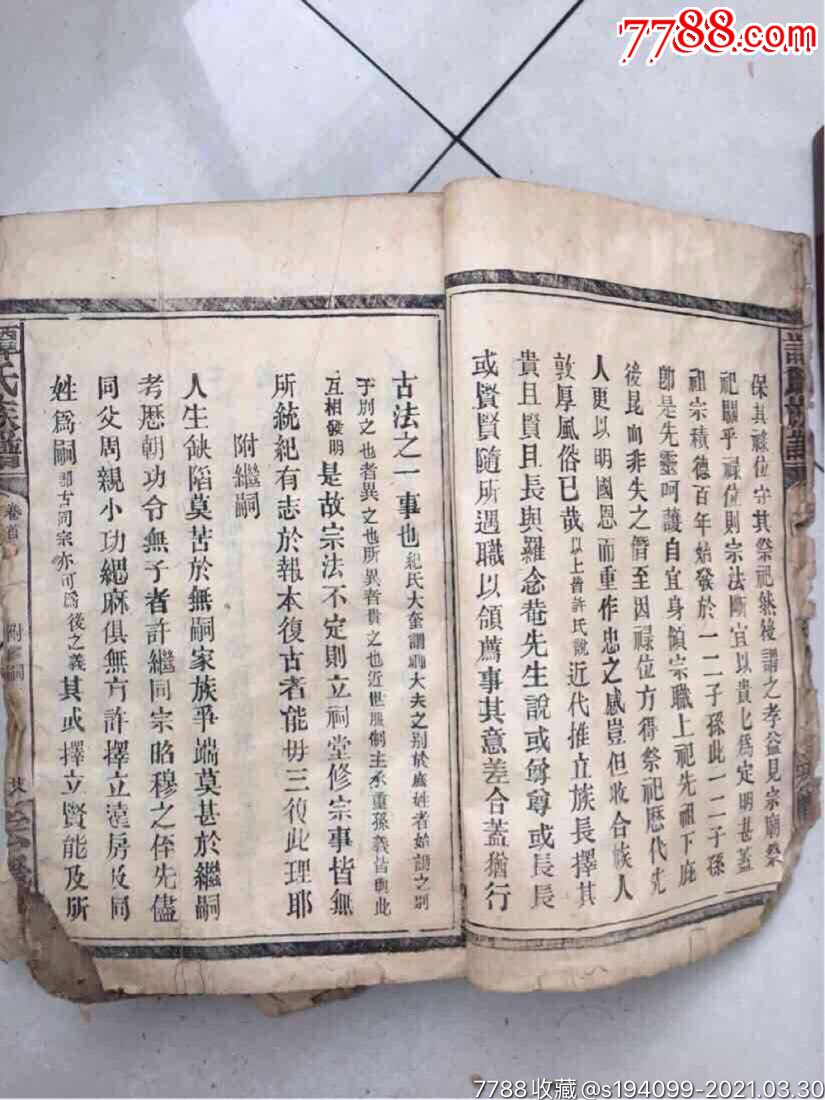 7788.com
保其祿位守其祭祀然後謂之孝益見宗廟祭
祀關乎祿位則宗法斷宜以貴者為定明甚蓋
祖宗積德百年始發於一二子孫此一二子孫
卽是先靈呵護自宜身領宗職上祀先祖下庇
後昆而非失之僭至因祿位方得祭祀歷代先
人更以明國恩而重作忠之感豈但收合族人
敦厚風俗已哉以上皆許氏說近代推立族長擇其
貴且賢且長與羅念菴先生說或尊尊或長長
或賢賢隨所遇職以領薦事其意差合蓋猶行
古法之一事也紀氏大奎謂卿大夫之別於庶姓者始謂之別
子別之也者異之也所異者貴之也近世服制主承重孫義皆與此
互相發明是故宗法不定則立祠堂修宗事皆無
所統紀有志於報本復古者能毋三復此理耶
附繼嗣
人生缺陷莫苦於無嗣家族爭端莫甚於繼嗣
考歷朝功令無子者許繼同宗昭穆之侄先儘
同父周親小功緦麻俱無方許擇立遠房及同
姓為嗣卽古同宗亦可為後之義其或擇立賢能及所
氏族譜
卷首
附繼嗣
7788收藏@s194099-2021.03.30